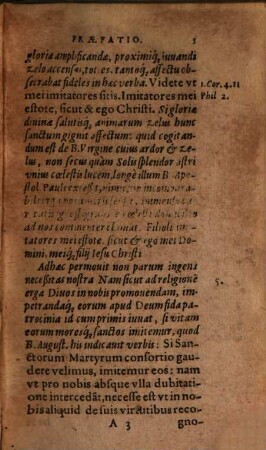 PRÆFATIO. 5
gloriæ amplificandæ, proximiq́, iuuandi
zelo accensus, tot, es. tantoq́, affectu ob-
secrabat fideles in hæc verba. Videte vt 1. Cor. 4.11
mei imitatores sitis. Imitatores mei Phil 2.
estote, sicut & ego Christi. Si gloriæ
diuinæ salutisq́, animarum zelus hunc
sanctum gignit affectum: quid cogitan
dum est de B. Virgine cuius ardor & ze-
lus, non secus quàm Solis splendor astri
vnius cœlestis lucem, longè illum B. Apo
stol. Pauli
ad nos continenter clamat. Filioli im
tatores mei estote, sicut & ego mei Do
mini, meiq́, filij Iesu Christi
Adhæc permouit non parum ingens
necessitas nostra Nam sicut ad religione 5.
ergà Diuos in nobis promouendam, im
petrandaq́, eorum apud Deum fida pa
trocinia id cumprimis iuuat, si vitam
eorum moresq́, sanctos imitemur, quod
B. August. his indicauit verbis: Si San-
ctorum Martyrum consortio gau-
dere velimus, imitemur eos: nam
vt pro nobis absque vlla dubitati
one intercedãt, necesse est vt in no-
bis aliquid de suis virtutibus reco-
A 3 gno-